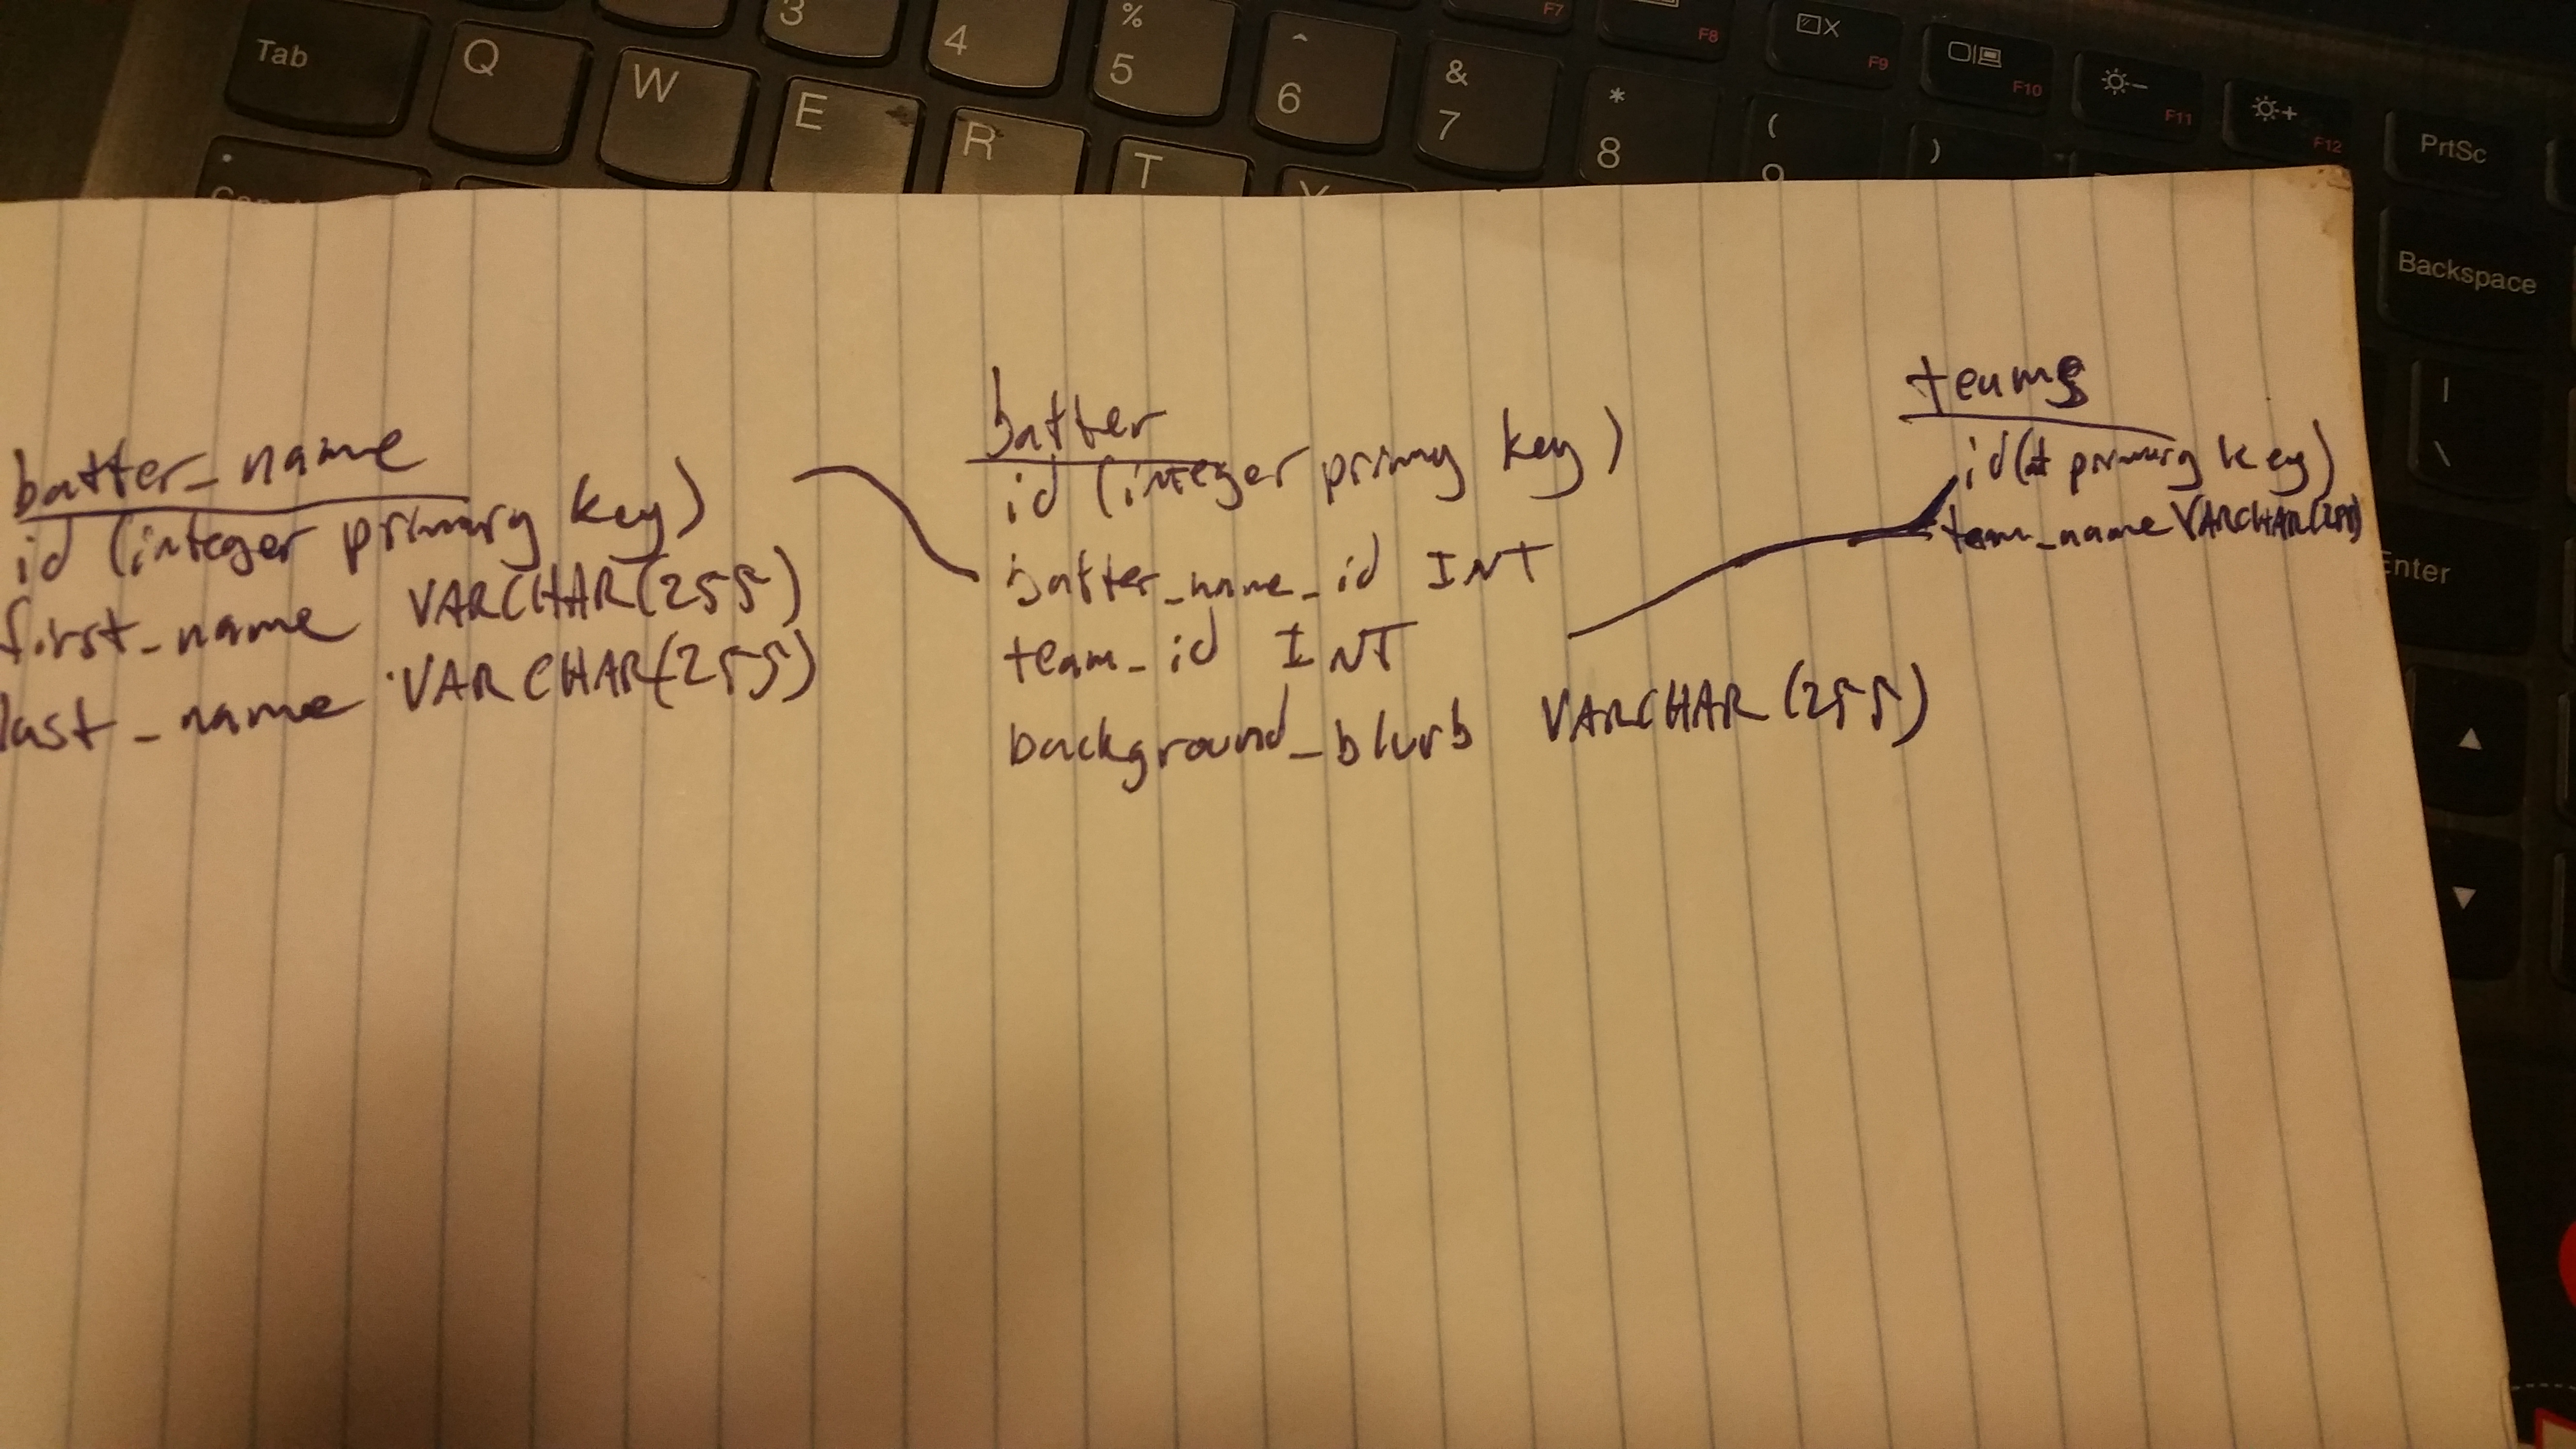 Tab
Q
W
3
E
4
R
%
5
T
^
6
&
7
F7
*
8
F8
(
9
F9
)
F10
F11
F12
PrtSc
Backspace
|
\
Enter
batter_name
id (integer primary key)
first_name VARCHAR(255)
last_name VARCHAR(255)
batter
id (integer primy key)
batter_name_id INT
team_id INT
background_blurb VARCHAR (255)
teams
id( primary key)
team_name VARCHAR(255)